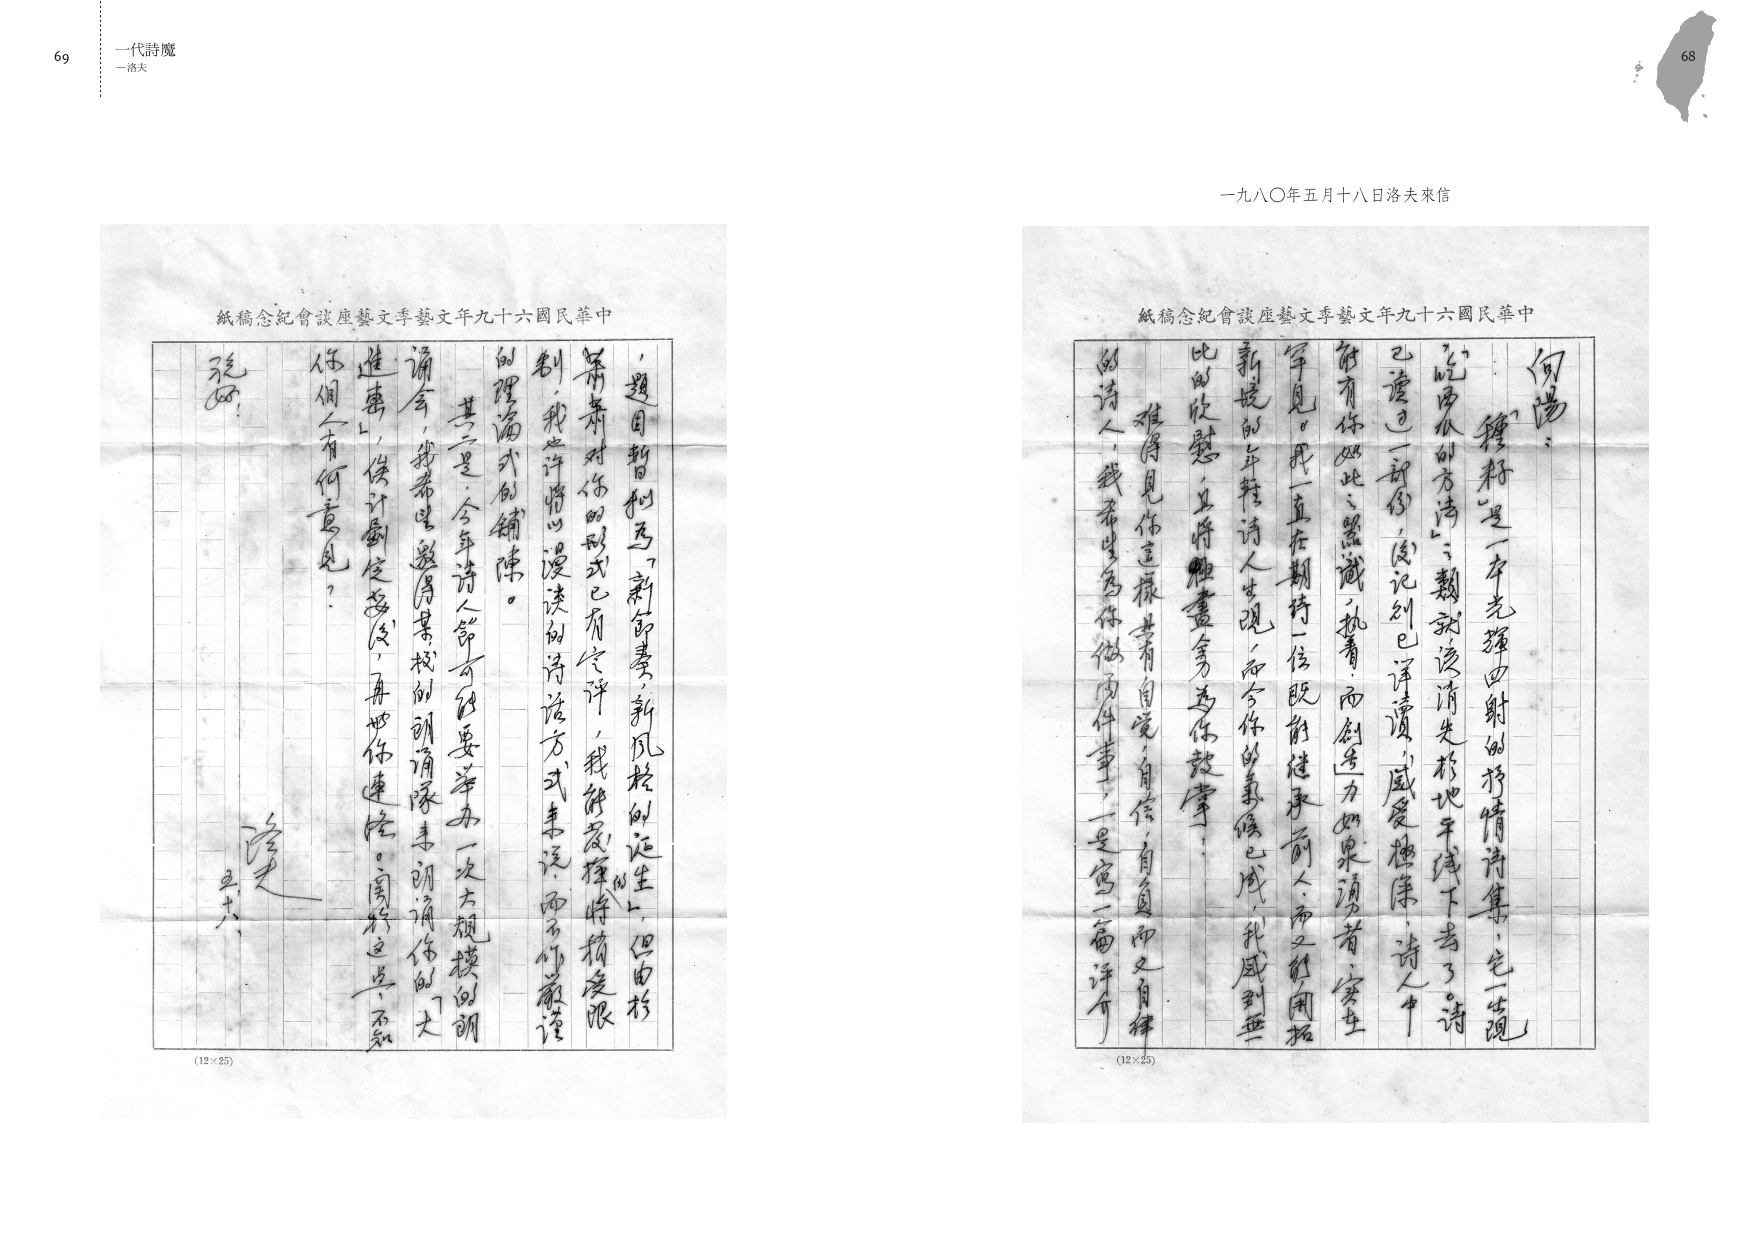 68
一九八〇年五月十八日洛夫來信
中華民國六十九年文藝季文藝座談會紀念稿紙
向陽：
「種籽」是一本光輝四射的抒情詩集，它一出現
，「吃西瓜的方法」之類就該消失於地平线下去了。詩
已讀过一部份，後記則已详讀，感受極深，诗人中
能有你如此之器識，执着，而創造力如泉湧者，实在
罕見。我一直在期待一位既能继承前人，而又能開拓
新境的年輕诗人出現，而今你的氣候已成，我感到無
比的欣慰，且將極盡全力為你鼓掌！
难得見你這樣具有自觉，自信，自負而又自律
的诗人，我希望為你做兩件事，一是寫一篇评介
(12×25)
69
一代詩魔
—洛夫
中華民國六十九年文藝季文藝座談會紀念稿紙
，題目暫拟為「新節奏，新風格的诞生」，但由於
蕭蕭对你的形式已有定评，我能發揮的將稍受限
制，我也许將以漫谈的诗话方式来说，而不作嚴谨
的理論式的鋪陳。
其二是，今年诗人節可能要举办一次大規模的朗
誦会，我希望邀得某校的朗誦隊来朗誦你的「大
進擊」，俟计劃定妥後，再與你連络。関於这点，不知
你個人有何意見？
祝好！
洛夫
五、十八、
(12×25)